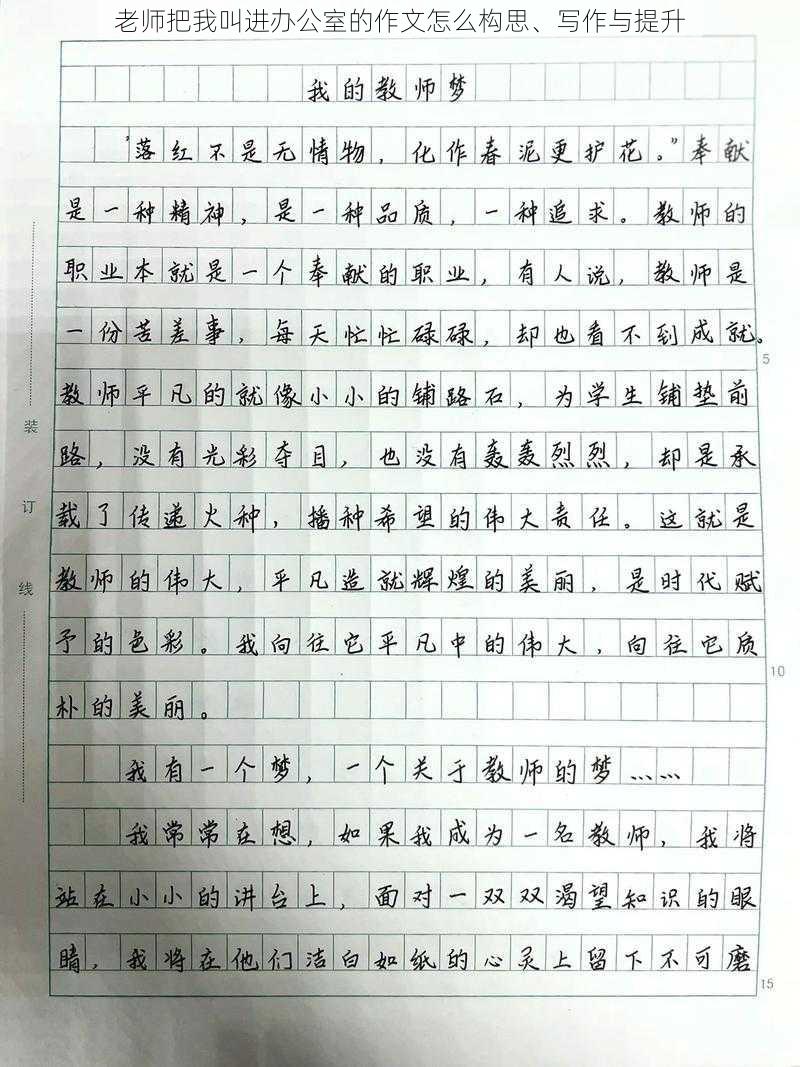 老师把我叫进办公室的作文怎么构思、写作与提升
我的教师梦
“落红不是无情物，化作春泥更护花。”奉献
是一种精神，是一种品质，一种追求。教师的
职业本就是一个奉献的职业，有人说，教师是
一份苦差事，每天忙忙碌碌，却也看不到成就。
5
教师平凡的就像小小的铺路石，为学生铺垫前
路，没有光彩夺目，也没有轰轰烈烈，却是承
载了传递火种，播种希望的伟大责任。这就是
教师的伟大，平凡造就辉煌的美丽，是时代赋
予的色彩。我向往它平凡中的伟大，向往它质
10
朴的美丽。
我有一个梦，一个关于教师的梦……
我常常在想，如果我成为一名教师，我将
站在小小的讲台上，面对一双双渴望知识的眼
睛，我将在他们洁白如纸的心灵上留下不可磨
15
装
订
线